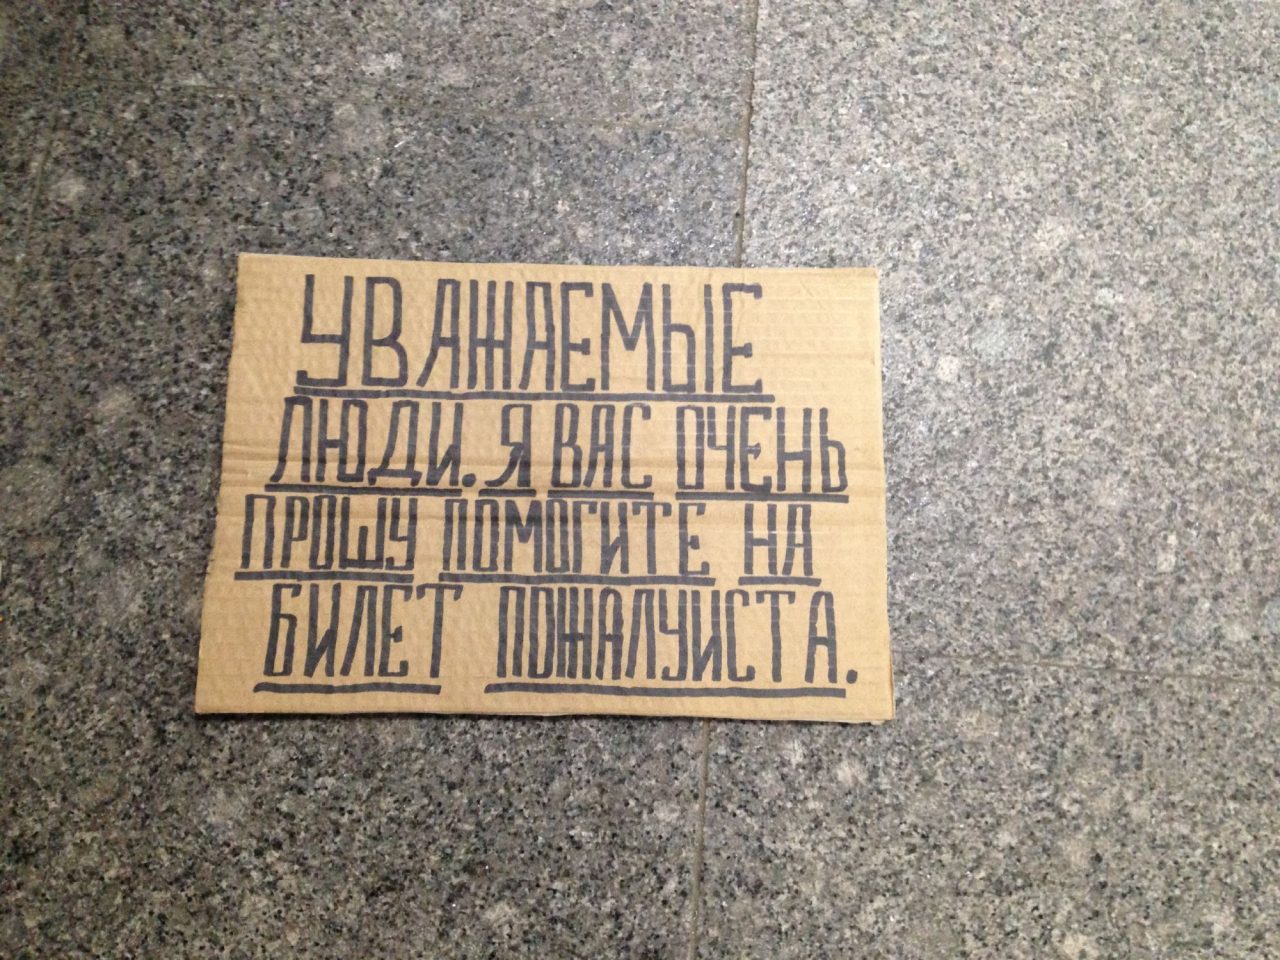 УВАЖАЕМЫЕ
ЛЮДИ. Я ВАС ОЧЕНЬ
ПРОШУ ПОМОГИТЕ НА
БИЛЕТ ПОЖАЛУИСТА.